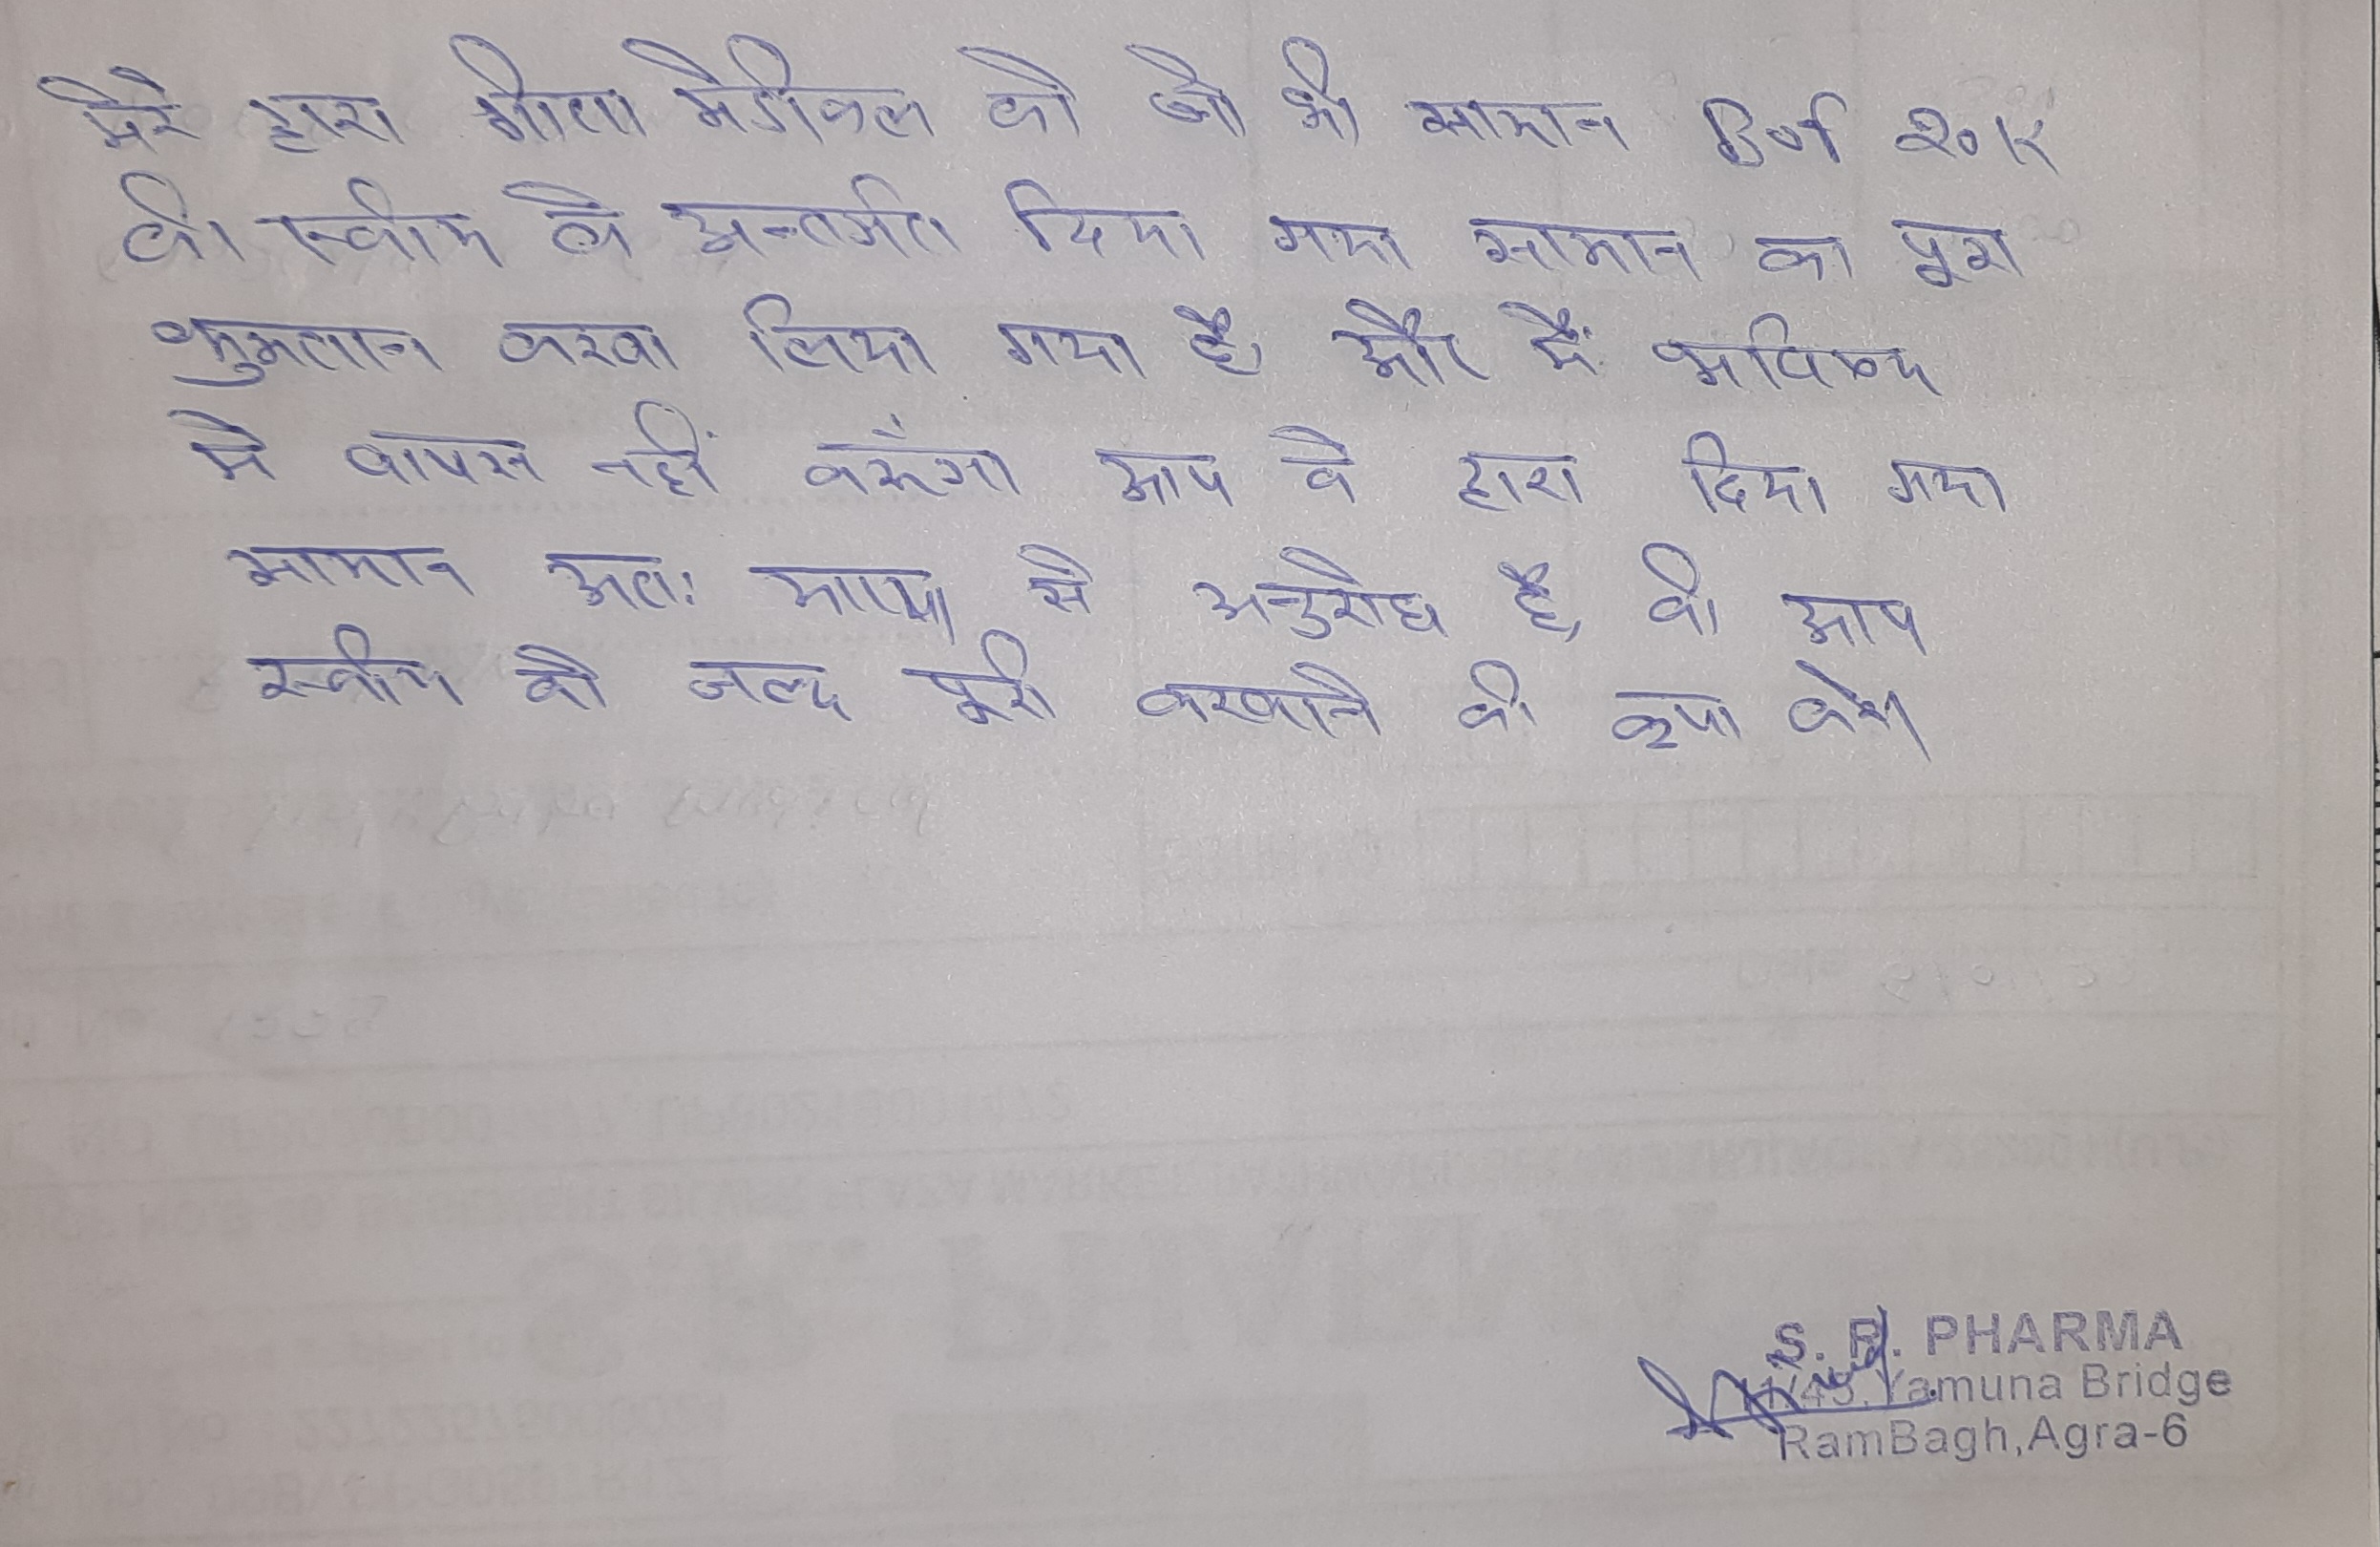 मेरे द्वारा गीता मेडीकल को जो भी सामान 20K
की स्कीम के अन्तर्गत दिया गया सामान का पूरा
भुगतान करवा लिया गया है, और मैं भविष्य
मे वापस नहीं करूँगा आप के द्वारा दिया गया
सामान अतः से अनुरोध है, की आप
स्कीम को जल्द पूरी करवाने की कृपा करें।
S. R. PHARMA
11/45, Yamuna Bridge
RamBagh,Agra-6